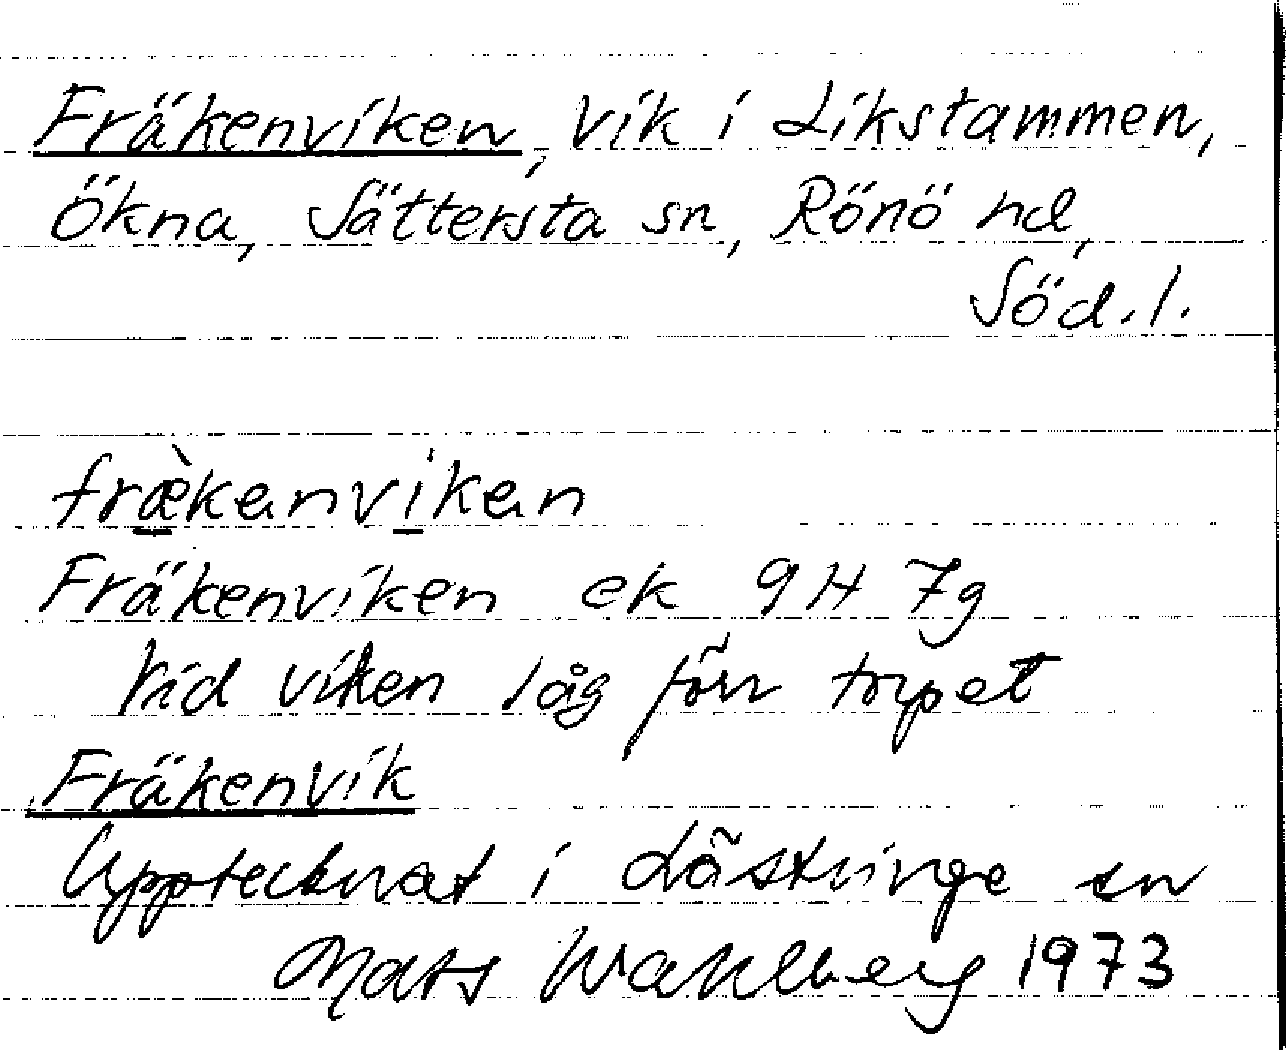 Fräkenviken, vik i Likstammen,
Ökna, Sättersta sn, Rönö hd,
Söd.l.
fræ̀kenviken
Fräkenviken ek 9H 7g
Vid viken låg förr torpet
Fräkenvik
Upptecknat i Lästringe sn
Mats Wahlberg 1973